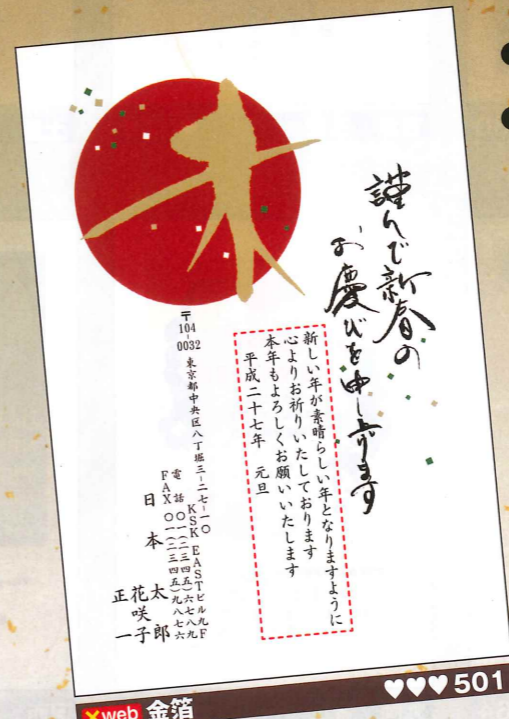 未
謹んで新春の
お慶びを申し上げます
新しい年が素晴らしい年となりますように
心よりお祈りいたしております
本年もよろしくお願いいたします
平成二十七年 元旦
〒104-0032 東京都中央区八丁堀三-二七-一〇
KSK EASTビル九F
電話 〇一(二三四五)六七八九
FAX 〇一(二三四五)九八七六
日本 太郎
花咲子
正一
♥♥♥ 501
×web 金箔